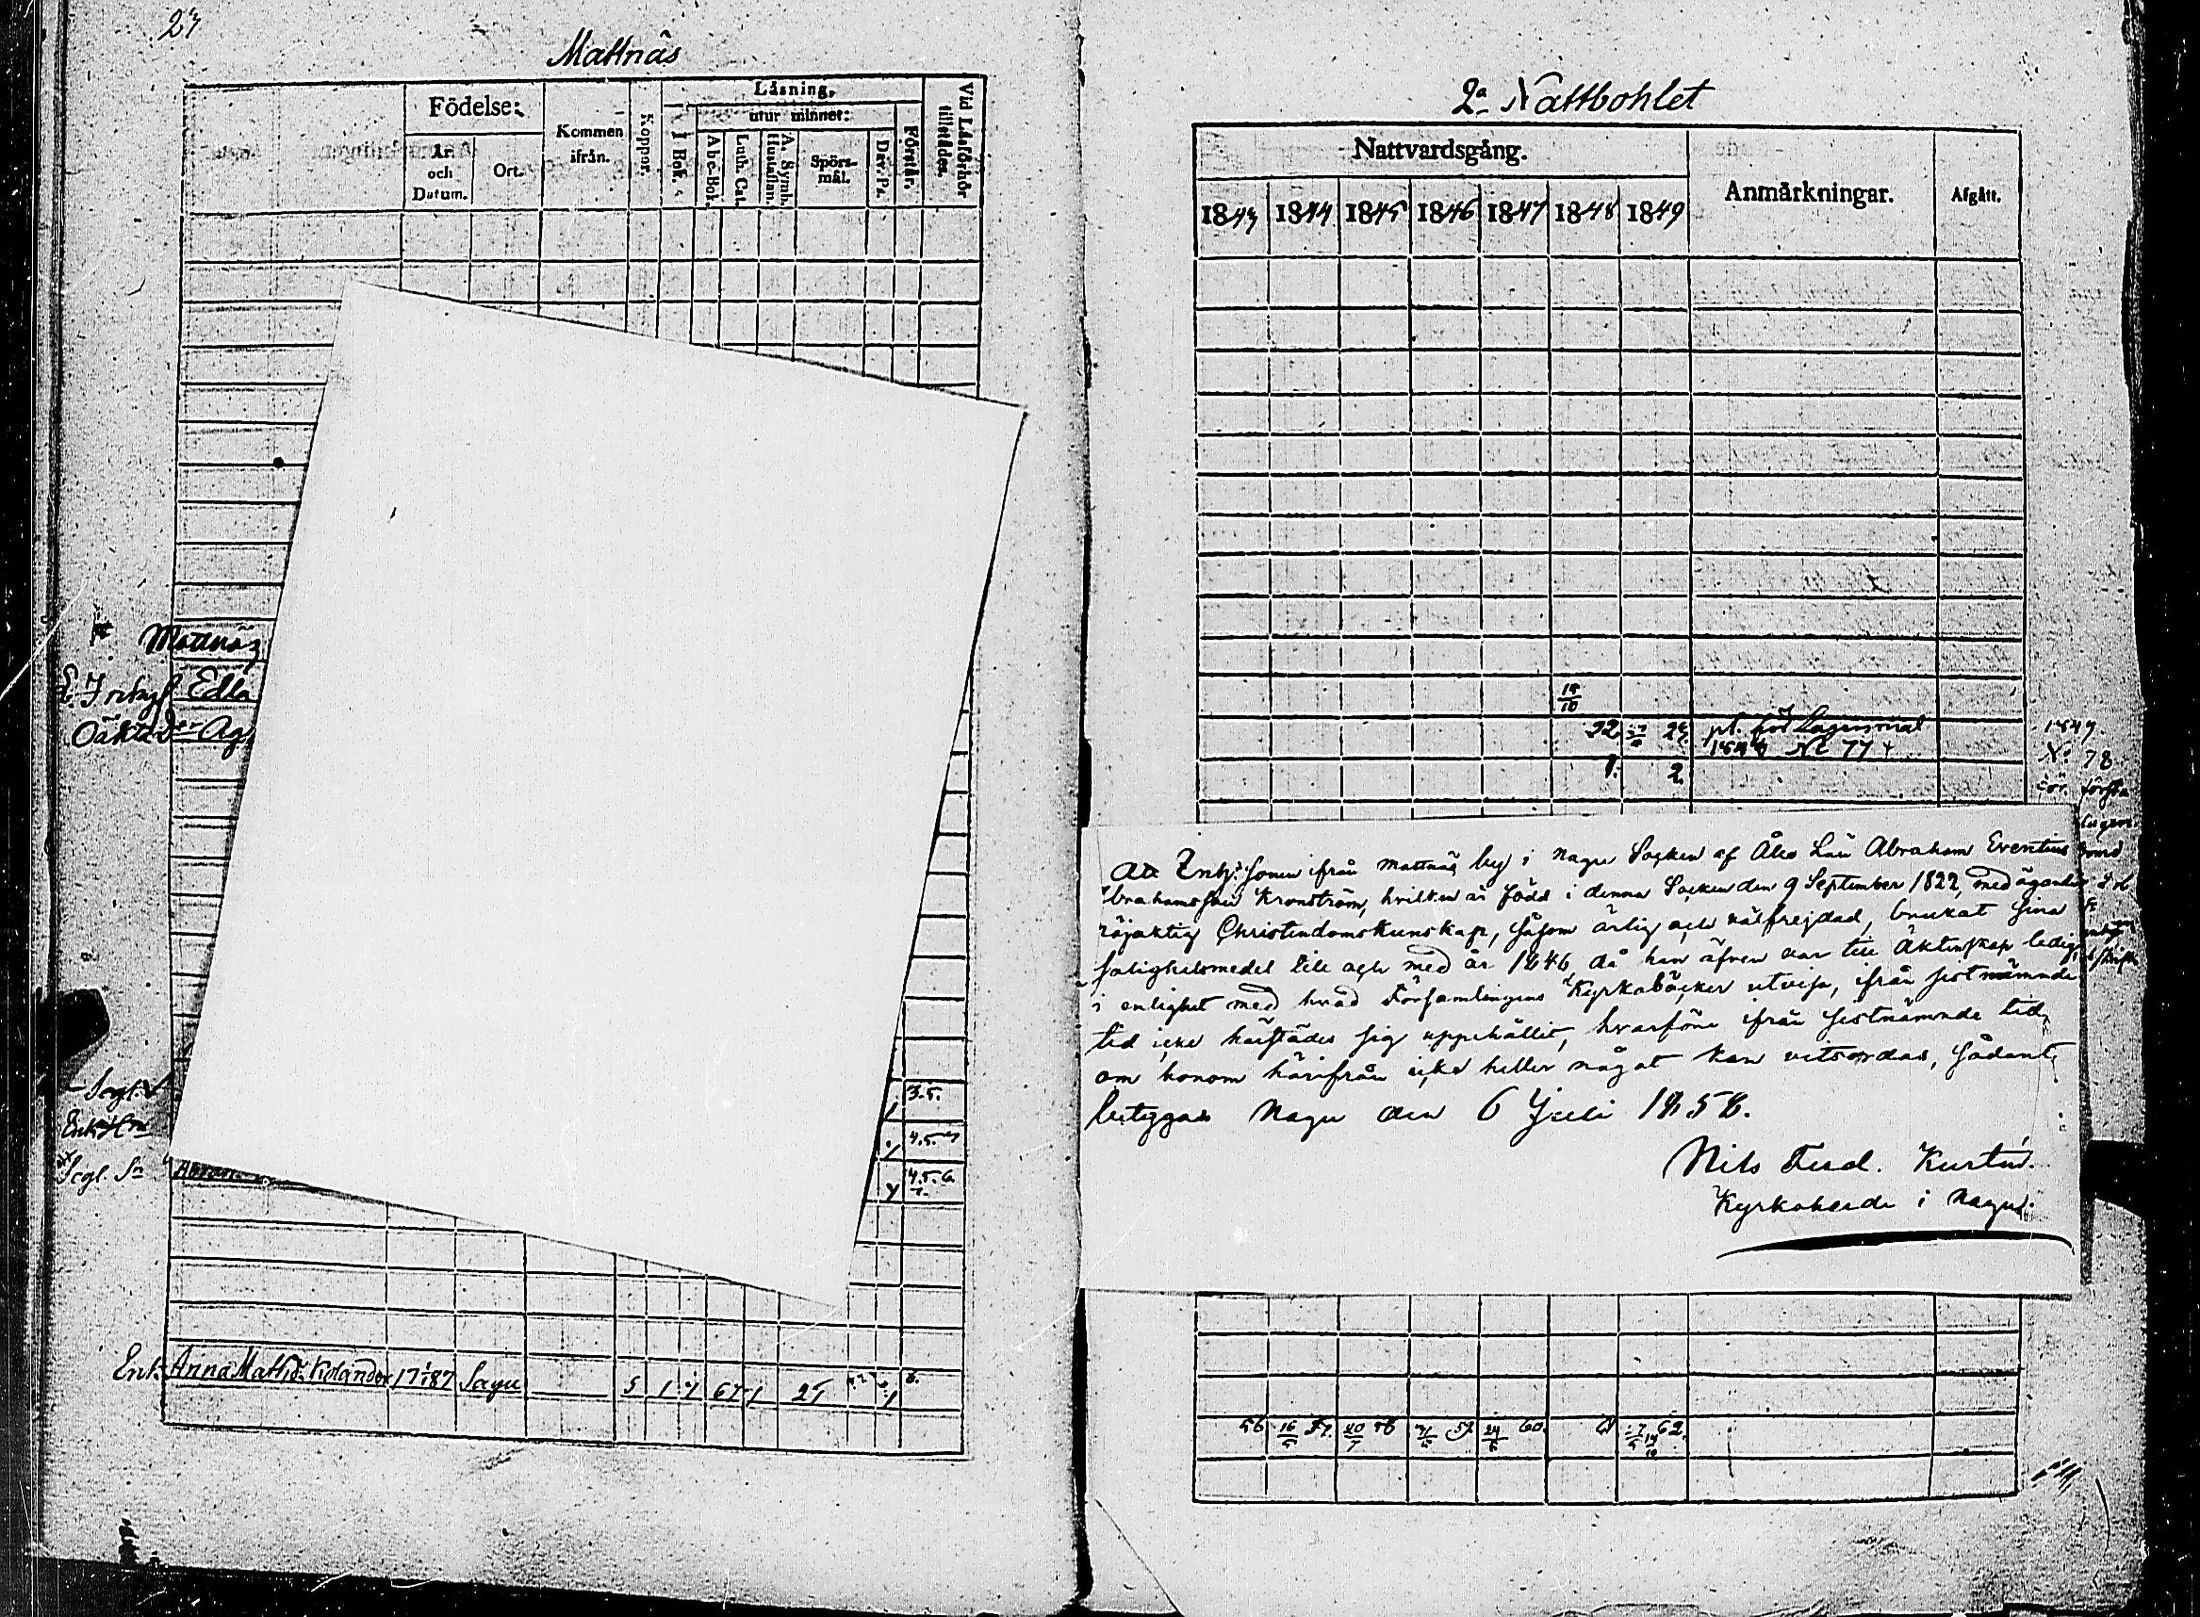 27
Mattnäs
Födelse:
År och Datum.
Ort.
Kommen ifrån.
Koppor.
Läsning.
I Bok.
utur minnet:
Abc-Bok.
Luth. Cat.
A. Symb. Hustaflan.
Spörsmål.
Dav. Ps.
Förstår.
Vid Läsförhör tillstädes.
Mattnäs
Edla
Oäkta Dr Ag
3.5.
4.5.
4.5.6
Scgl. Sn
Enk. Anna Matsd. Kolander 1787 Sagu 5
2a Nattbohlet
Nattvardsgång.
1843 1844 1845 1846 1847 1848 1849
Anmärkningar.
Afgått.
18/10
22 24 pl. för Lägersmål
No 77
1. 2
1847.
No 78
första
Att Enk. Sonen ifrån Mattnäs by i Nagu Socken af Åbo Län Abraham Eventius
Abrahamsson Kronström, hvilken är född i denna Socken den 9 September 1822, med ägande
nöjaktig Christendomskunskap, såsom ärlig och välfrejdad, brukat sina
salighetsmedel till och med år 1846 då han äfven var till Äktenskap ledig,
i enlighet med hvad Församlingens Kyrkoböcker utvisa, ifrån sistnämnde
tid icke härstädes sig uppehållit, hvarföre ifrån sistnämnde tid
om honom härifrån icke heller något kan vitsordas, sådant
betygas Nagu den 6 Juli 1858.
Nils Ferd. Kurtén.
Kyrkoherde i Nagu.
56 16/5 57. 20/7 58 59 24/6 60. 61 62.